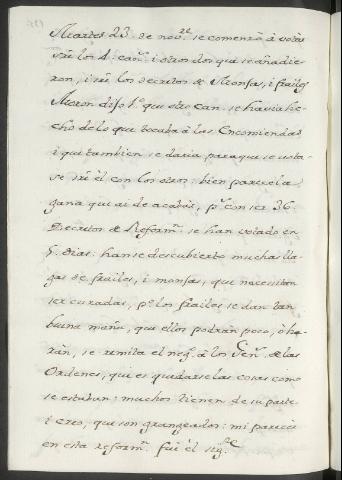 Martes 23. de nov.re se comenzó à votàr
sri los 4. can.s i otros dos que se añadie
ron, i sri los decretos de Monjas, i frailes
Moron dijo l.o que otro Can. se havia he
cho de lo que tocaba à las Encomiendas
i que tambien se daria para que se vota-
se sri èl con los otros: bien parece la
gana que ai de acabàr, p.s con ser 36.
Decretos de Reform.n se han votado en
5. dias: hanse descubierto muchas lla
gas de frailes, i monjas, que necesitan
ser curadas, p.o los frailes se dan tan
buena maña, que ellos podràn poco, ò ha-
ràn, se remita el neg.o à los Gen.s de las
Ordenes, que es quedarse las cosas como
se estaban: muchos tienen de su parte
i creo, que son grangeados: mi parecer
en esta reform.n fuè el sig.te